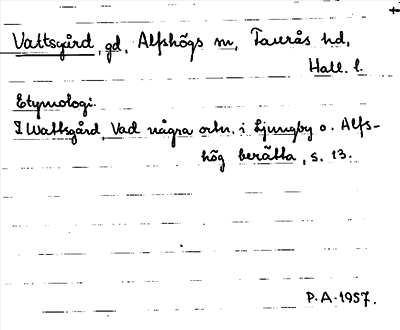 +
Vattsgård, gd, Alfshögs sn, Faurås hd,
Hall. l.
Etymologi.
I Wattsgård, Vad några ortn. i Ljungby o. Alfs-
hög berätta, s. 13.
P.A. 1957.